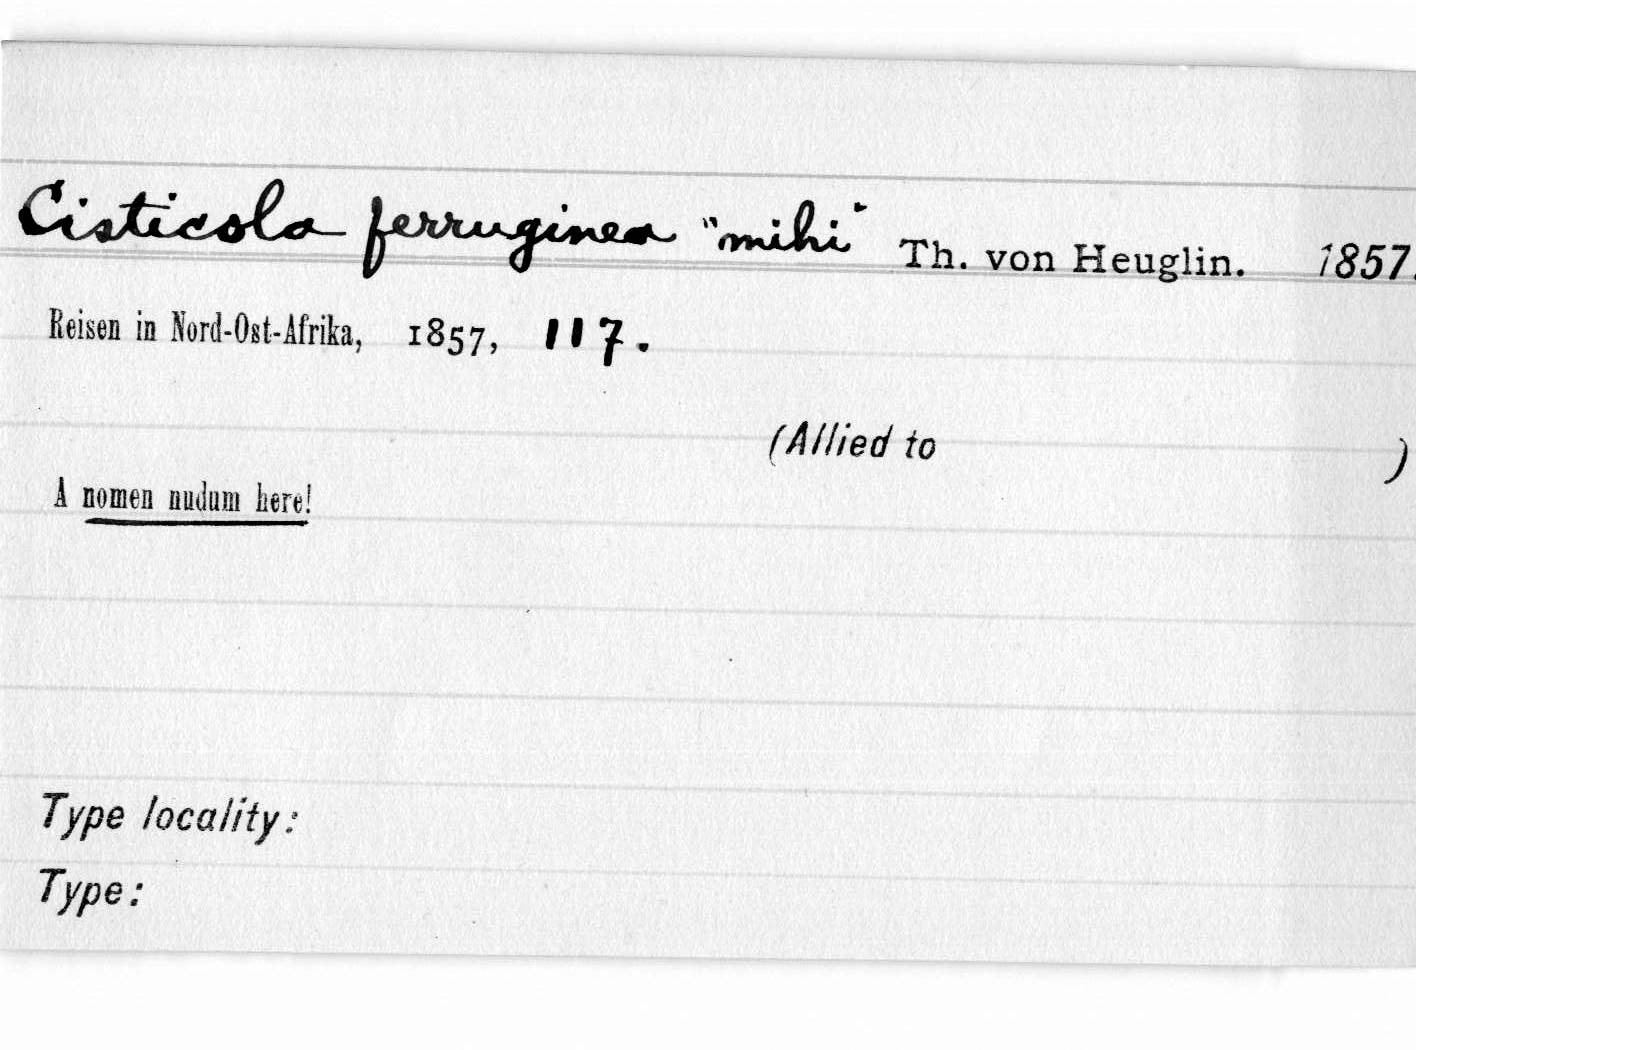 Cisticola ferruginea "mihi" Th. von Heuglin. 1857.
Reisen in Nord-Ost-Afrika, 1857, 117.
(Allied to )
A nomen nudum here!
Type locality:
Type: